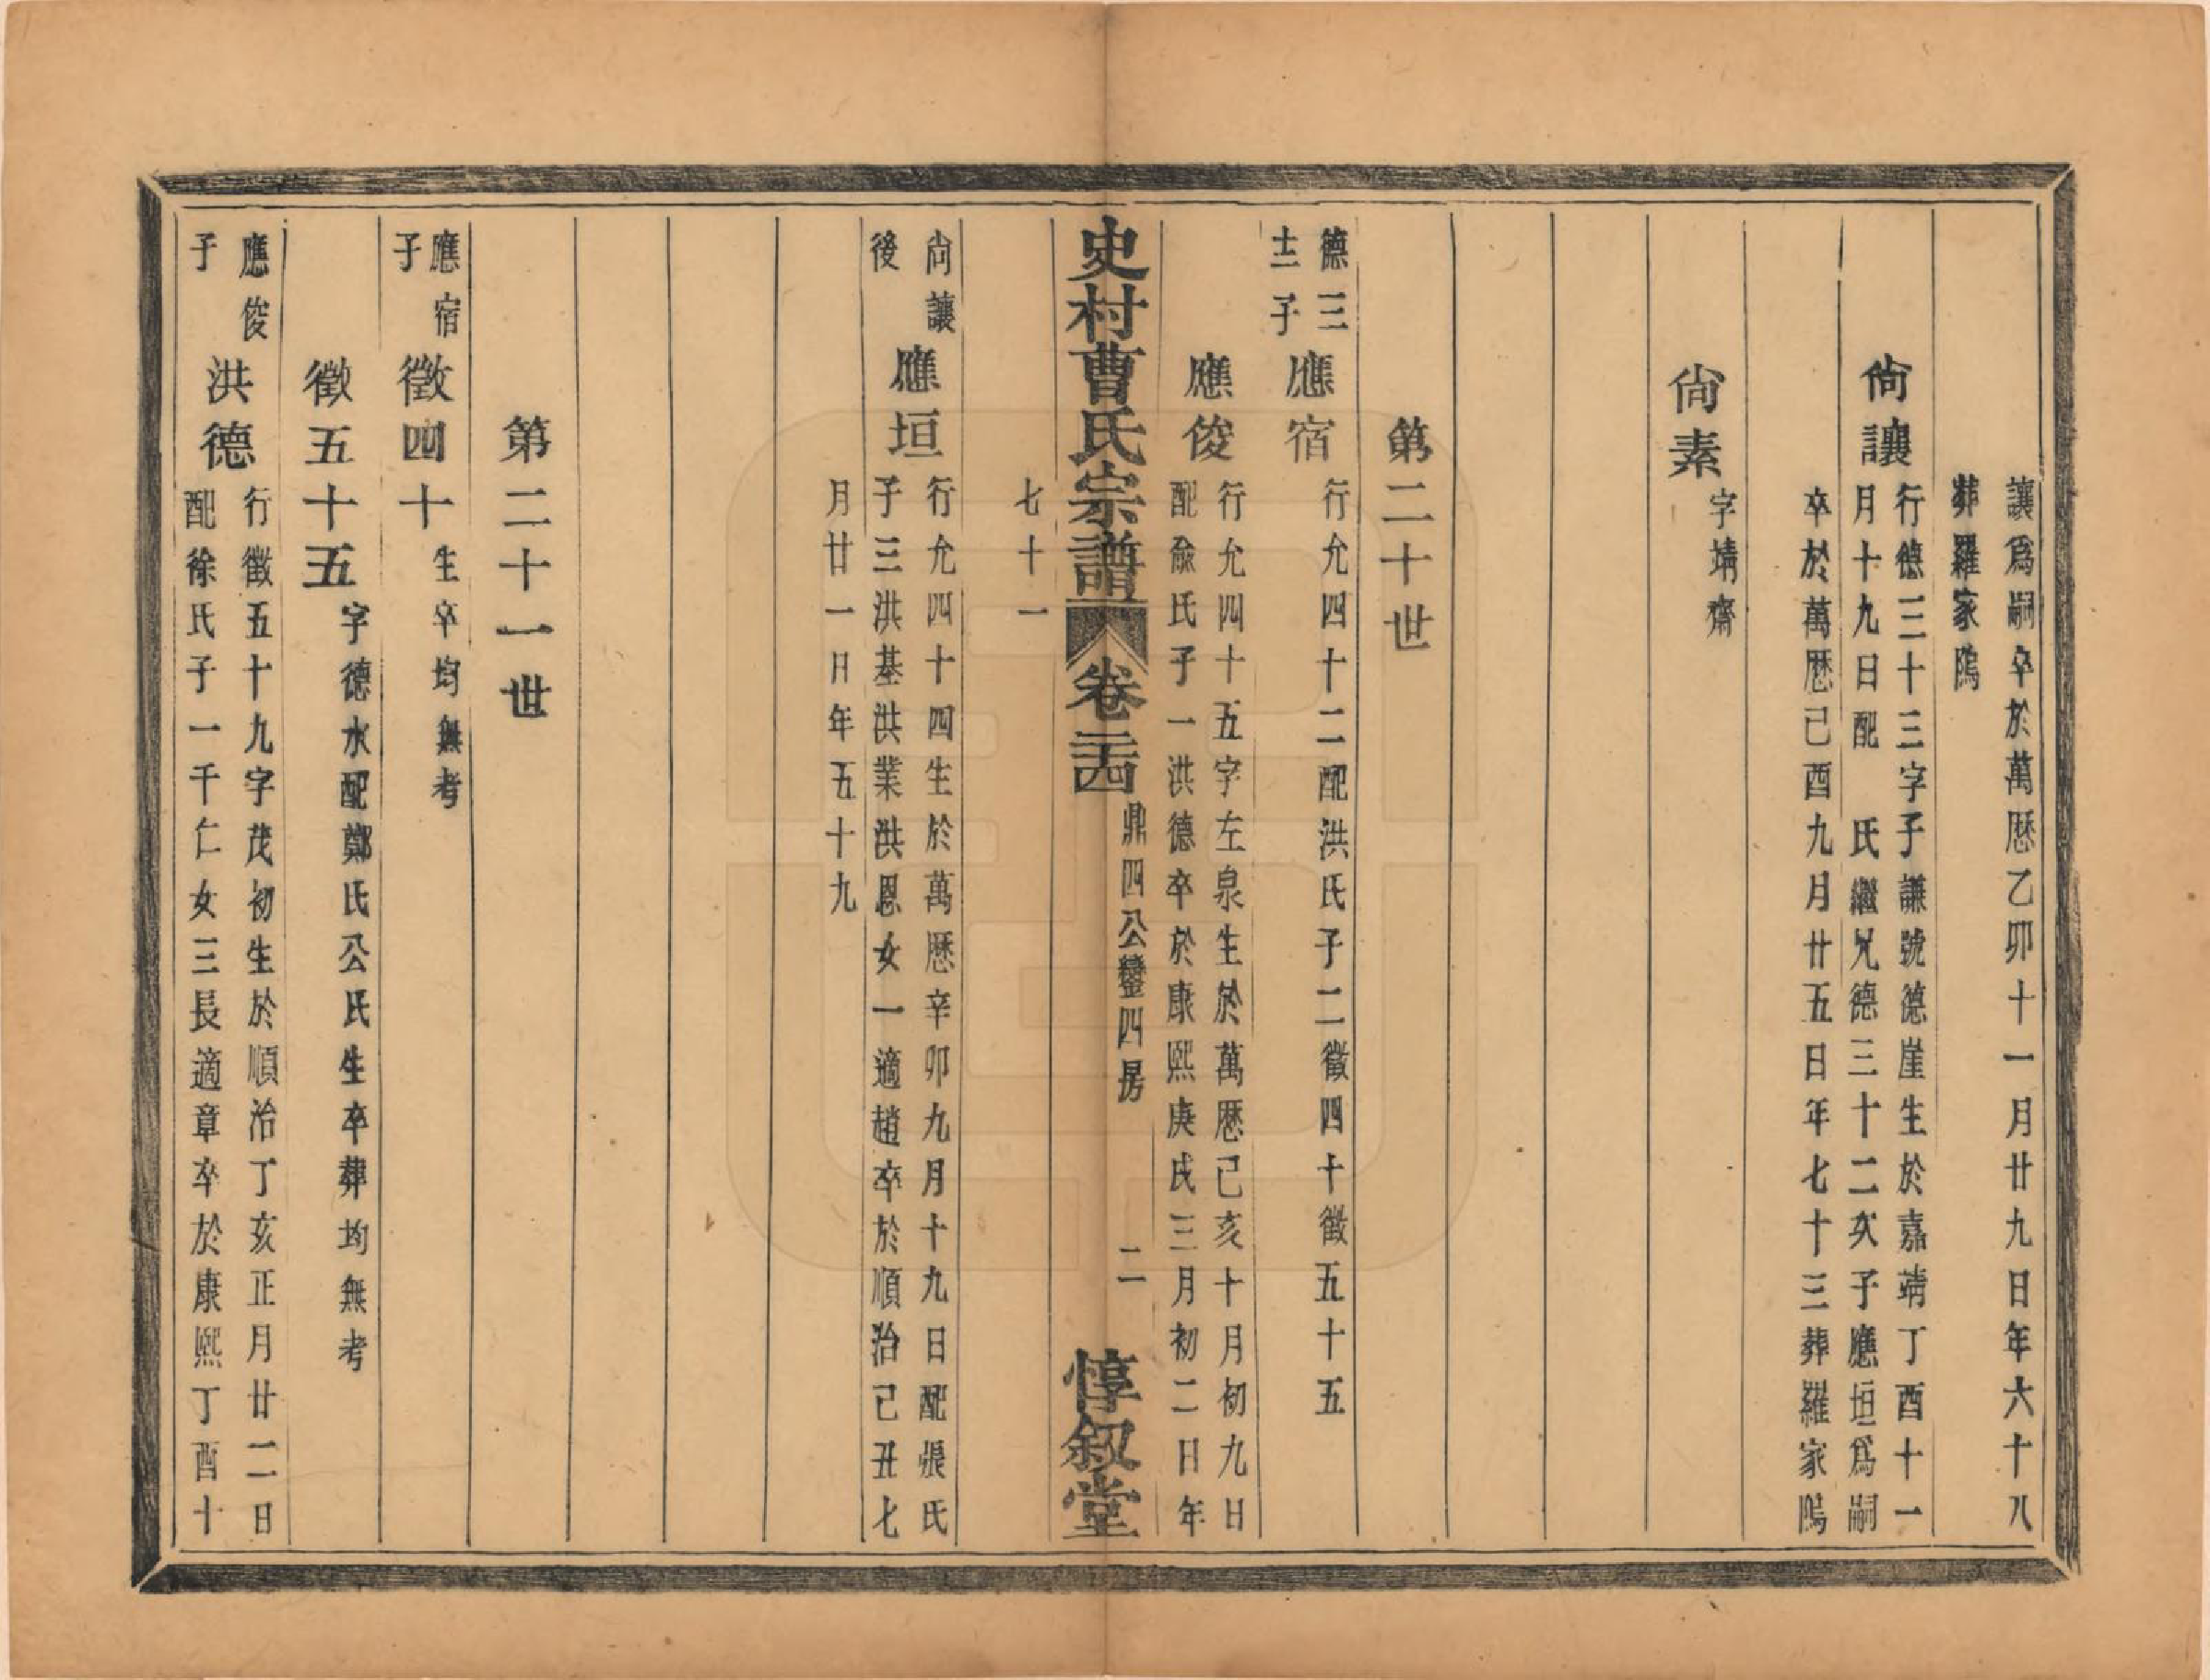 讓爲嗣卒於萬歷乙卯十一月廿九日年六十八
葬羅家隖
尙讓
行德三十三字子謙號德崖生於嘉靖丁酉十一
月十九日配　氏繼兄德三十二次子應垣爲嗣
卒於萬歷己酉九月廿五日年七十三葬羅家隖
尙素
字靖齋
第二十世
德三
士子
應宿
行允四十二配洪氏子二徵四十徵五十五
應俊
行允四十五字左泉生於萬歷己亥十月初九日
配俞氏子一洪德卒於康熙庚戌三月初二日年
史村曹氏宗譜
卷二十四
鼎四公鑾四房
二
惇叙堂
七十一
尙讓
後
應垣
行允四十四生於萬歷辛卯九月十九日配張氏
子三洪基洪業洪恩女一適趙卒於順治己丑七
月廿一日年五十九
第二十一世
應宿
子
徵四十
生卒均無考
徵五十五
字德水配鄭氏公氏生卒葬均無考
應俊
子
洪德
行徵五十九字茂初生於順治丁亥正月廿二日
配徐氏子一千仁女三長適章卒於康熙丁酉十